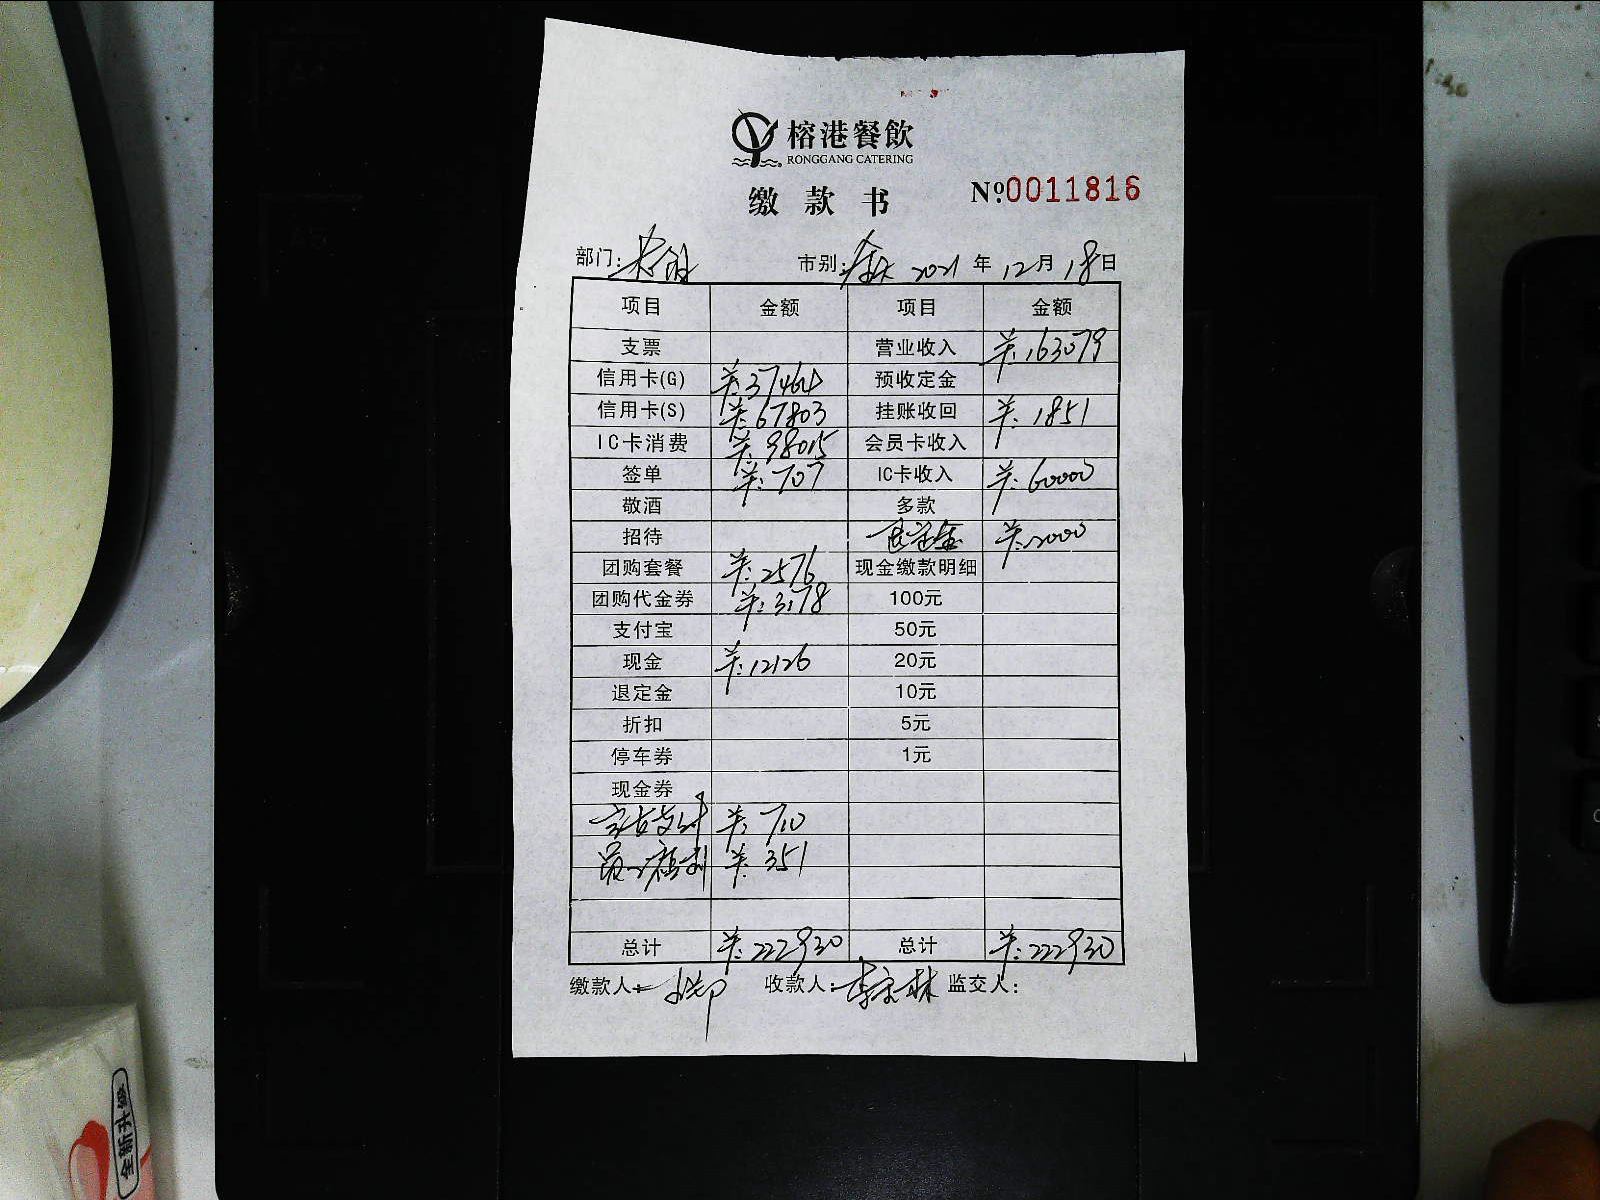 榕港餐飲
RONGGANG CATERING
缴款书 №0011816
部门: 市别:全天 2021年12月18日
项目 金额 项目 金额
支票 营业收入 ¥:163079
信用卡(G) ¥:37464 预收定金
信用卡(S) ¥:67803 挂账收回 ¥:1851
IC卡消费 ¥:98015 会员卡收入
签单 ¥:707 IC卡收入 ¥:60000
敬酒 多款
招待 ¥:-2000
团购套餐 ¥:2576 现金缴款明细
团购代金券 ¥:3178 100元
支付宝 50元
现金 ¥:12126 20元
退定金 10元
折扣 5元
停车券 1元
现金券
支付 ¥:710
员工福利 ¥:351
总计 ¥:222930 总计 ¥:222930
缴款人: 收款人: 监交人:
全新升级